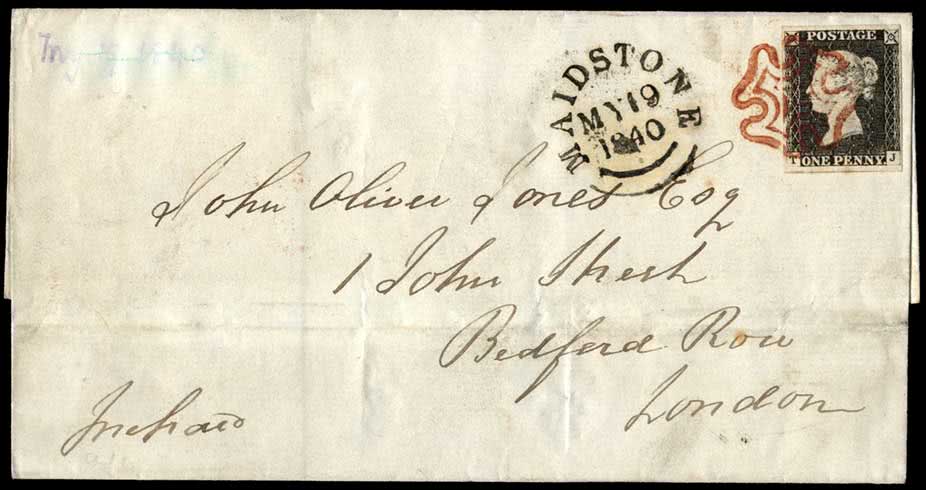 My 19 1840
MAIDSTONE
MY 19
1840
POSTAGE
T ONE PENNY. J
John Oliver Jones Esq
1 John Street
Bedford Row
London